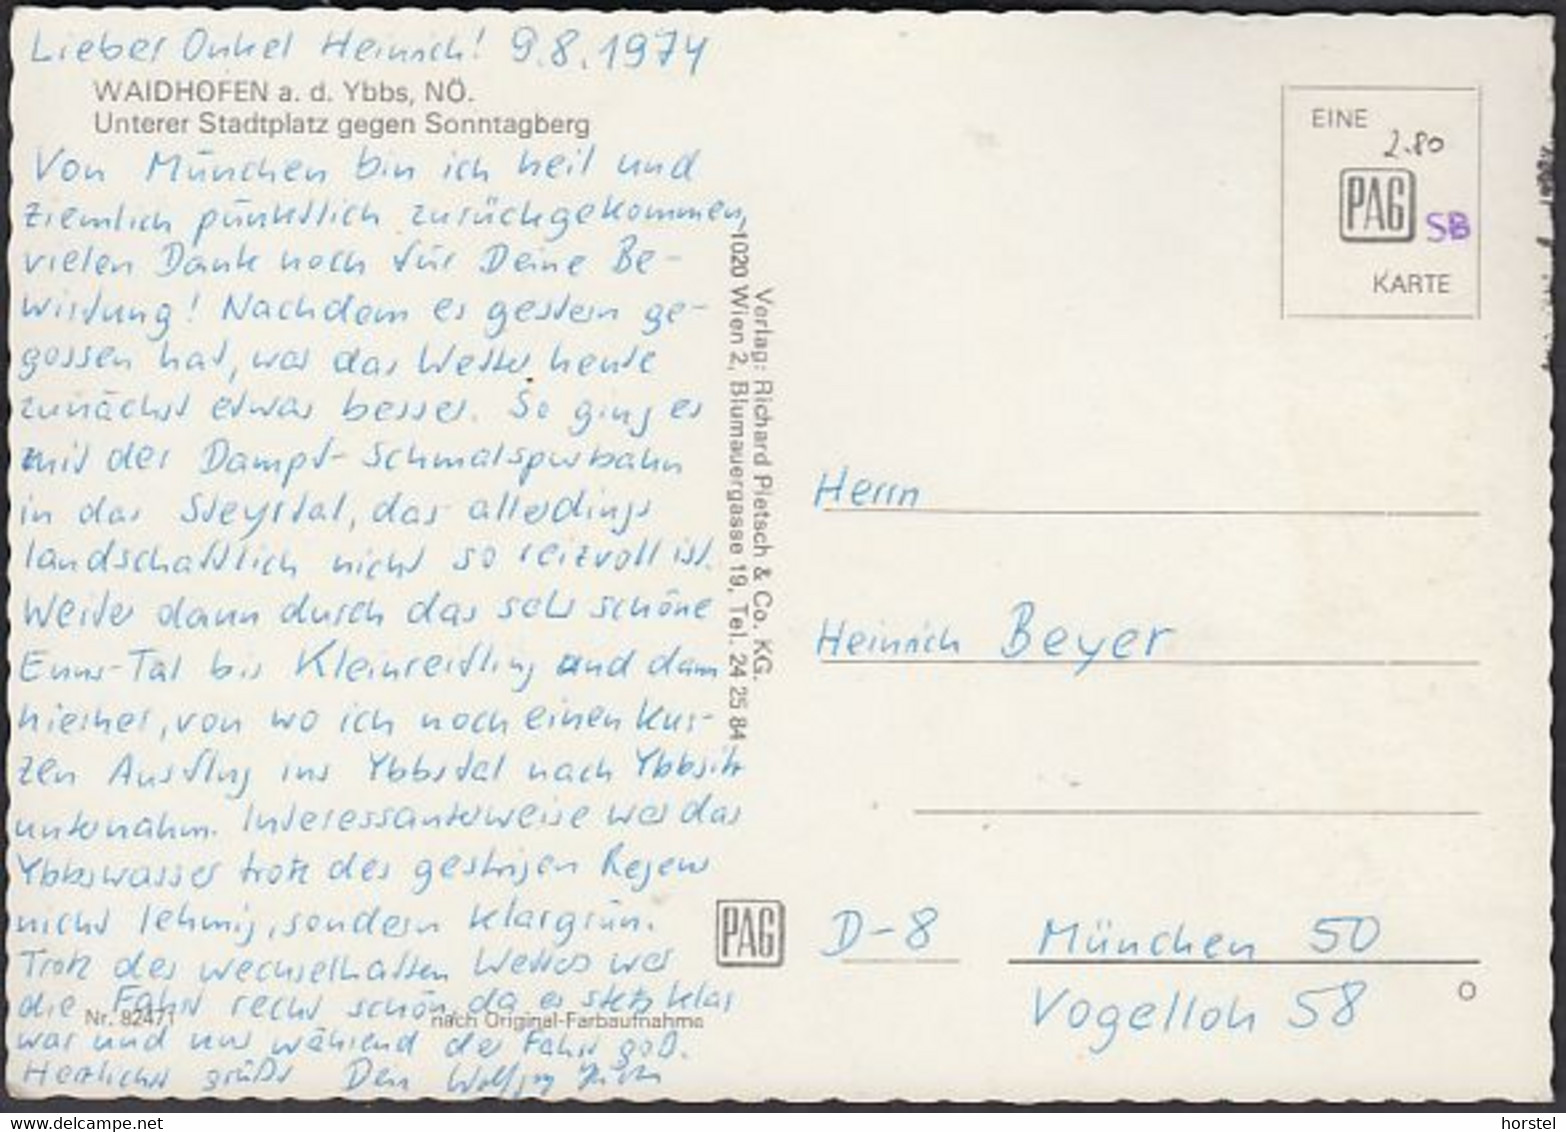 Lieber Onkel Heinrich! 9.8.1974
WAIDHOFEN a. d. Ybbs, NÖ.
Unterer Stadtplatz gegen Sonntagberg
Von München bin ich heil und
ziemlich pünktlich zurückgekommen,
vielen Dank noch für Deine Be-
wirtung! Nachdem es gestern ge-
gossen hat, war das Wetter heute
zunächst etwas besser. So ging es
mit der Dampf-Schmalspurbahn
in das Steyrtal, das allerdings
landschaftlich nicht so reizvoll ist.
Weiter dann durch das sehr schöne
Enns-Tal bis Kleinreifling und dann
hierher, von wo ich noch einen kur-
zen Ausflug ins Ybbstal nach Ybbsitz
unternahm. Interessanterweise war das
Ybbswasser trotz des gestrigen Regens
nicht lehmig, sondern klargrün.
Trotz des wechselhaften Wetters war
die Fahrt recht schön, da es stets klar
war und nur während der Fahrt goß.
Herzlichst grüßt Dein Wolfgang
Nr. 82471
nach Original-Farbaufnahme
Verlag: Richard Pietsch & Co. KG.
1020 Wien 2, Blumauergasse 19, Tel. 24 25 84
PAG
EINE
2.80
PAG
SB
KARTE
Herrn
Heinrich Beyer
D-8 München 50
Vogelloh 58
O
horstel